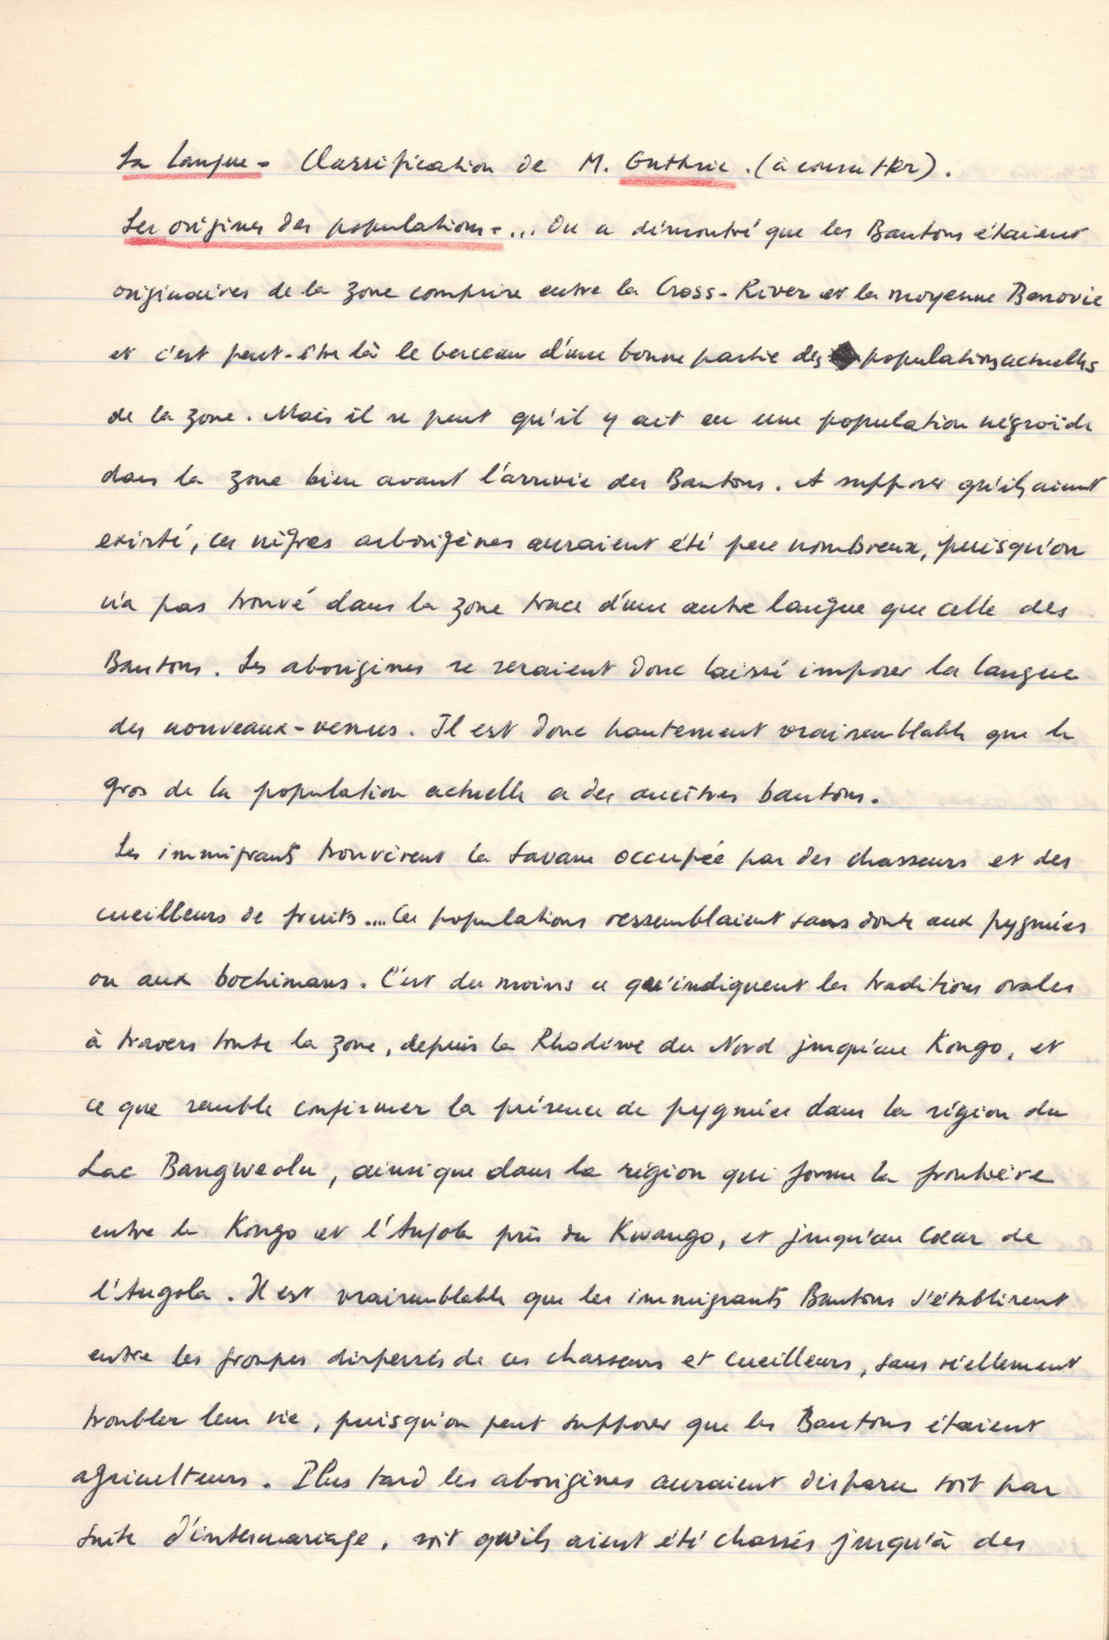 La langue - Classification de M. Guthrie. (à consulter).
Les origines des populations - ... On a démontré que les Bantous étaient
originaires de la zone comprise entre la Cross-River et la moyenne Benovie
et c'est peut-être là le berceau d'une bonne partie des populations actuelles
de la zone. Mais il se peut qu'il y ait eu une population négroïde
dans la zone bien avant l'arrivée des Bantous. A supposer qu'ils aient
existé, ces nègres arborigènes auraient été peu nombreux, puisqu'on
n'a pas trouvé dans la zone trace d'une autre langue que celle des
Bantous. Les aborigènes se seraient donc laissé imposer la langue
des nouveaux-venus. Il est donc hautement vraisemblable que le
gros de la population actuelle a des ancêtres bantous.
Les immigrants trouvèrent la savane occupée par des chasseurs et des
cueilleurs de fruits .... Ces populations ressemblaient sans doute aux pygmées
ou aux bochimans. C'est du moins ce qu'indiquent les traditions orales
à travers toute la zone, depuis la Rhodésie du Nord jusqu'au Kongo, et
ce que semble confirmer la présence de pygmées dans la région du
Lac Bangweolu, ainsi que dans la région qui forme la frontière
entre le Kongo et l'Angola près du Kwango, et jusqu'au cœur de
l'Angola. Il est vraisemblable que les immigrants Bantous s'établirent
entre les groupes dispersés de ces chasseurs et cueilleurs, sans réellement
troubler leur vie, puisqu'on peut supposer que les Bantous étaient
agriculteurs. Plus tard les aborigènes auraient disparu soit par
suite d'intermariage, soit qu'ils aient été chassés jusqu'à des